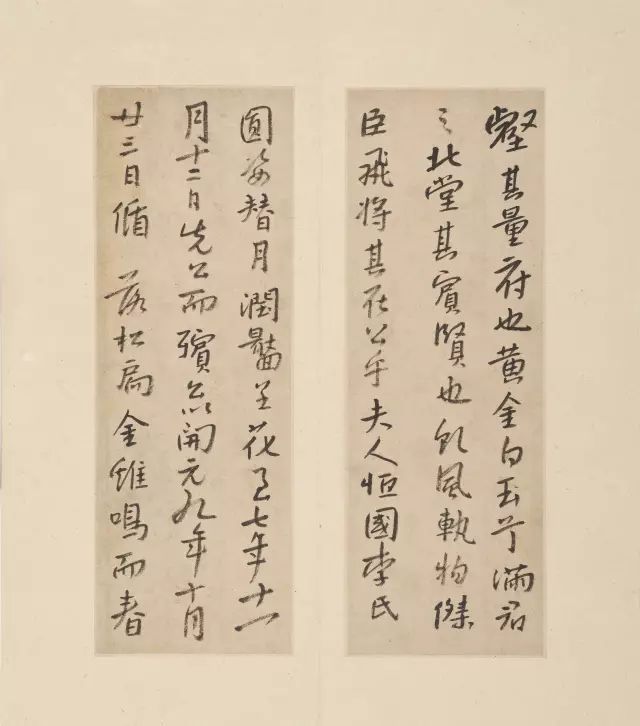 壑其量府也黄金白玉滿君
之北堂其賓賢也風執物傑
臣飛將其在公乎夫人恒國李氏
圓姿替月潤呈花七年十一
月十二日先公而殯開元九年十月
廿三日循落松扃金雉鳴而春